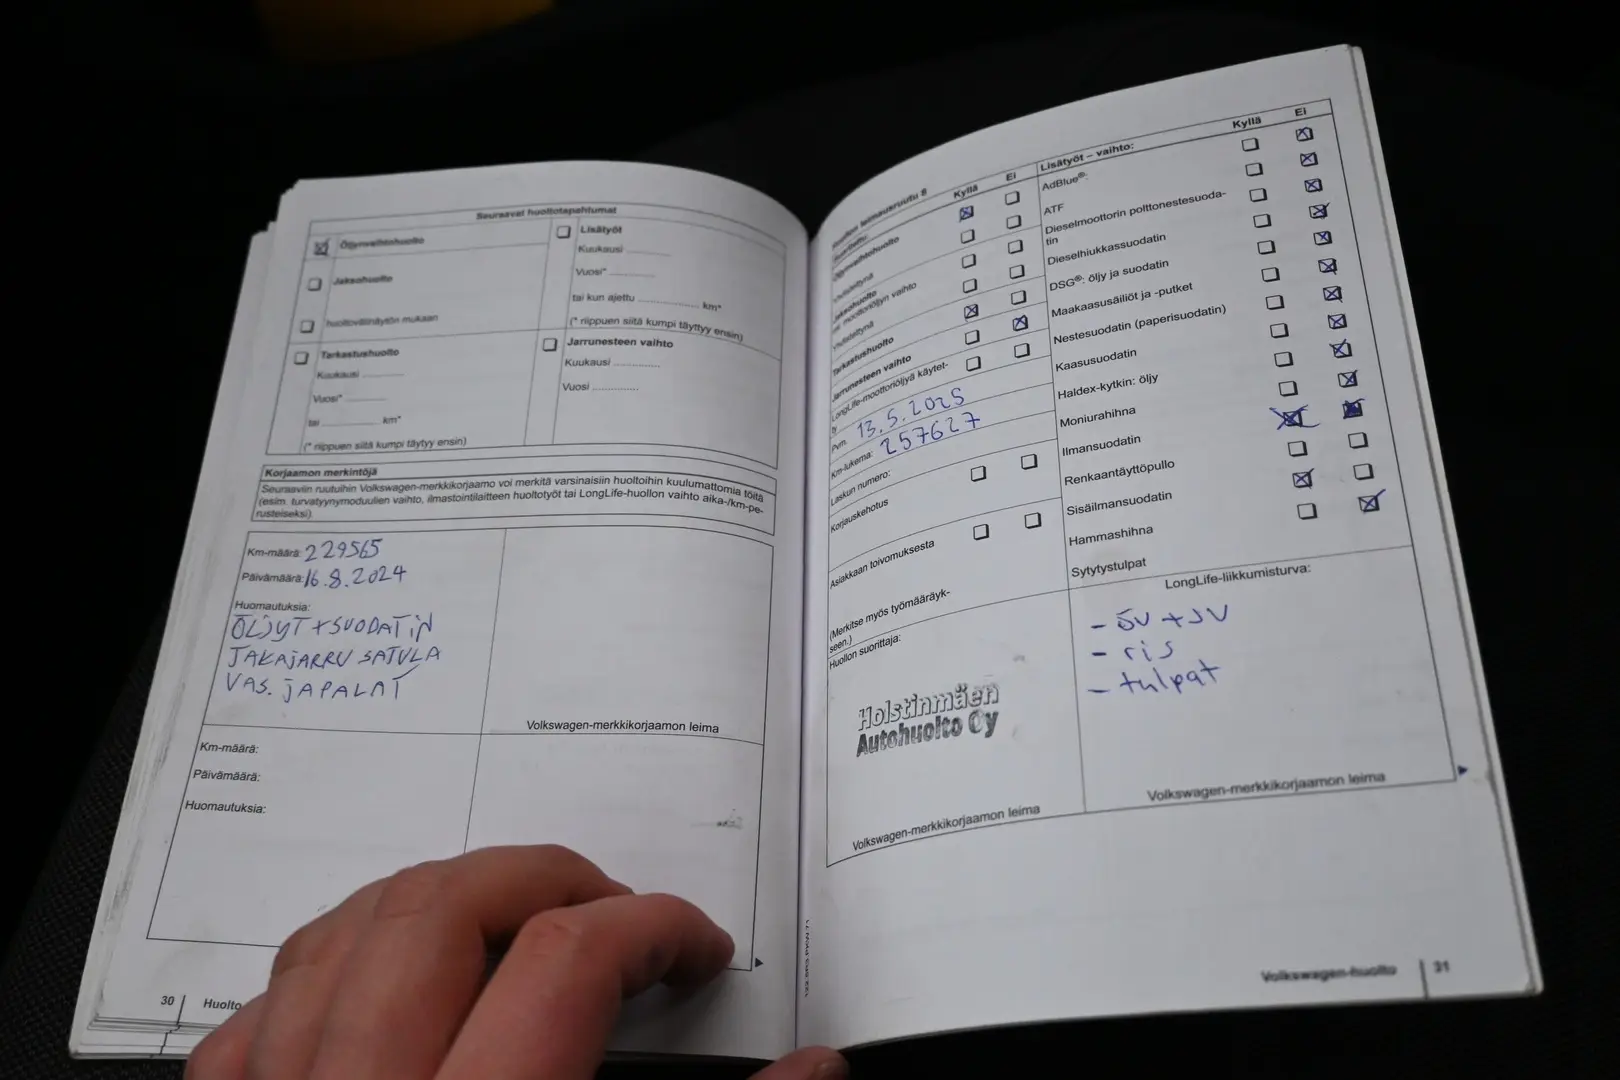 Seuraavat huoltotapahtumat
Öljynvaihtohuolto
Jaksohuolto
huoltovälinäytön mukaan
Tarkastushuolto
Kuukausi ............
Vuosi* ............
tai ............ km*
(* riippuen siitä kumpi täytyy ensin)
Lisätyöt
Kuukausi ............
Vuosi* ............
tai kun ajettu ............ km*
(* riippuen siitä kumpi täyttyy ensin)
Jarrunesteen vaihto
Kuukausi ............
Vuosi ............
Korjaamon merkintöjä
Seuraaviin ruutuihin Volkswagen-merkkikorjaamo voi merkitä varsinaisiin huoltoihin kuulumattomia töitä
(esim. turvatyynymoduulien vaihto, ilmastointilaitteen huoltotyöt tai LongLife-huollon vaihto aika-/km-pe-
rusteiseksi).
Km-määrä: 229565
Päivämäärä: 16.8.2024
Huomautuksia:
ÖLJYT + SUODATIN
JAKAJARRU SATULA
VAS. JAPALAT
Volkswagen-merkkikorjaamon leima
Km-määrä:
Päivämäärä:
Huomautuksia:
30 Huolto
Huollon leimausruutu 8
Kyllä Ei
Öljynvaihtohuolto
Yhdistettynä
Jaksohuolto
ml. moottoriöljyn vaihto
Yhdistettynä
Tarkastushuolto
Jarrunesteen vaihto
LongLife-moottoriöljyä käytet-
ty
Pvm. 13.5.2025
Km-lukema: 257627
Laskun numero:
Korjauskehotus
Asiakkaan toivomuksesta
(Merkitse myös työmääräyk-
seen.)
Huollon suorittaja:
Holstinmäen
Autohuolto Oy
Volkswagen-merkkikorjaamon leima
Lisätyöt – vaihto: Kyllä Ei
AdBlue®:
ATF
Dieselmoottorin polttonestesuoda-
tin
Dieselhiukkassuodatin
DSG®: öljy ja suodatin
Maakaasusäiliöt ja -putket
Nestesuodatin (paperisuodatin)
Kaasusuodatin
Haldex-kytkin: öljy
Moniurahihna
Ilmansuodatin
Renkaantäyttöpullo
Sisäilmansuodatin
Hammashihna
Sytytystulpat
LongLife-liikkumisturva:
- öv + jv
- ris
- tulpat
Volkswagen-merkkikorjaamon leima
Volkswagen-huolto 31